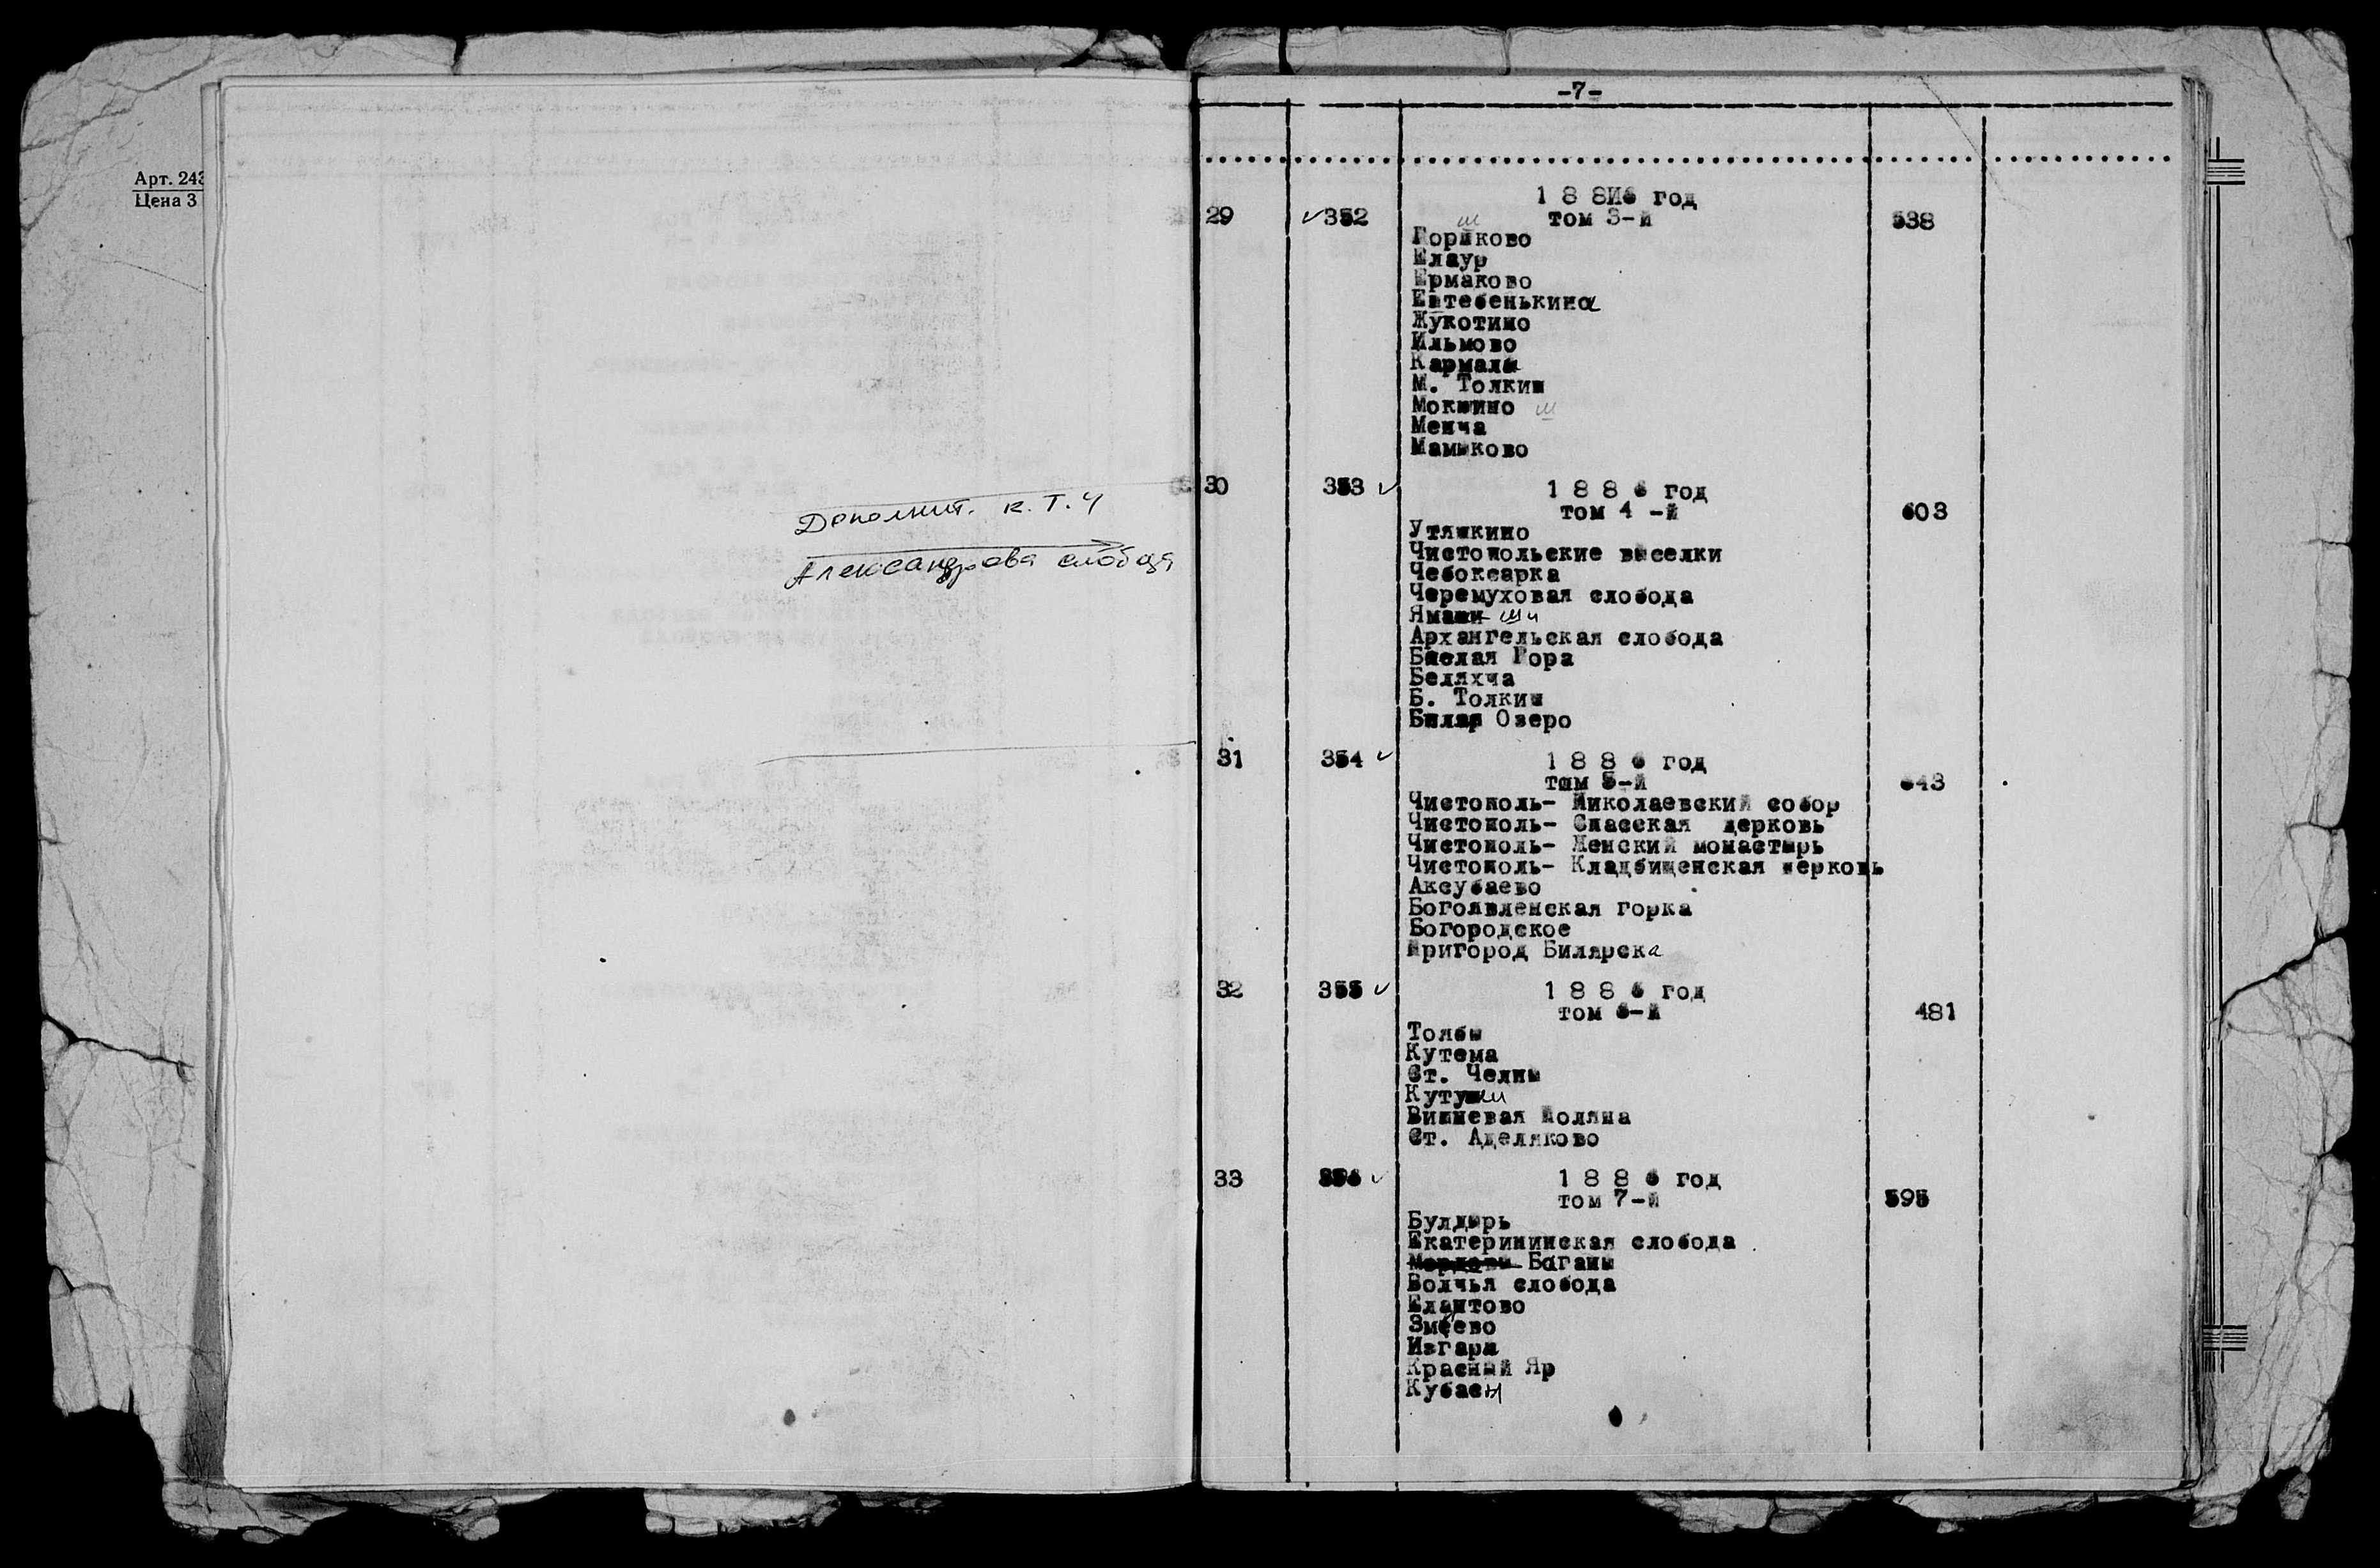 Арт. 243
Цена 3
Дополнит. к. Т. 4
Александрова слобода
-7-
29 352 1 8 8И6 год 538
том 3-й
ш
Горшково
Елаур
Ермаково
Ештебенькина
Жукотино
Ильмово
Кармалы
М. Толкиш
Мокшино ш
Менча
Мамыково
30 353 1 8 8 6 год
том 4 -й 603
Утяшкино
Чистопольские выселки
Чебоксарка
Черемуховая слобода
Ямаши ши
Архангельская слобода
Белая Гора
Беляхча
Б. Толкиш
Белая Озеро
31 354 1 8 8 6 год
том 5-й 643
Чистополь- Николаевский собор
Чистополь- Спасская церковь
Чистополь- Женский монастырь
Чистополь- Кладбищенская церковь
Аксубаево
Богоявленская горка
Богородское
Пригород Билярска
32 355 1 8 8 6 год
том 6-й 481
Толбы
Кутема
Ст. Челны
Кутушки
Вишневая Поляна
Ст. Аделяково
33 356 1 8 8 6 год
том 7-й 595
Булдырь
Екатерининская слобода
Баганы
Волчья слобода
Елантово
Змеево
Изгары
Красный Яр
Кубасы